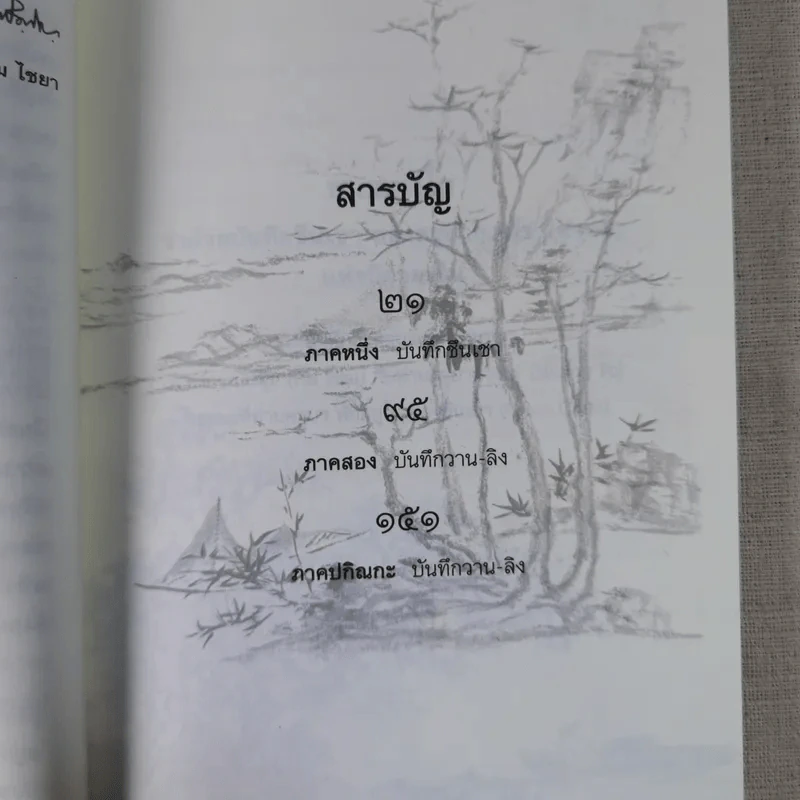 ม ไชยา
สารบัญ
๒๑
ภาคหนึ่ง บันทึกชึนเชา
๙๕
ภาคสอง บันทึกวาน-ลิง
๑๕๑
ภาคปกิณกะ บันทึกวาน-ลิง